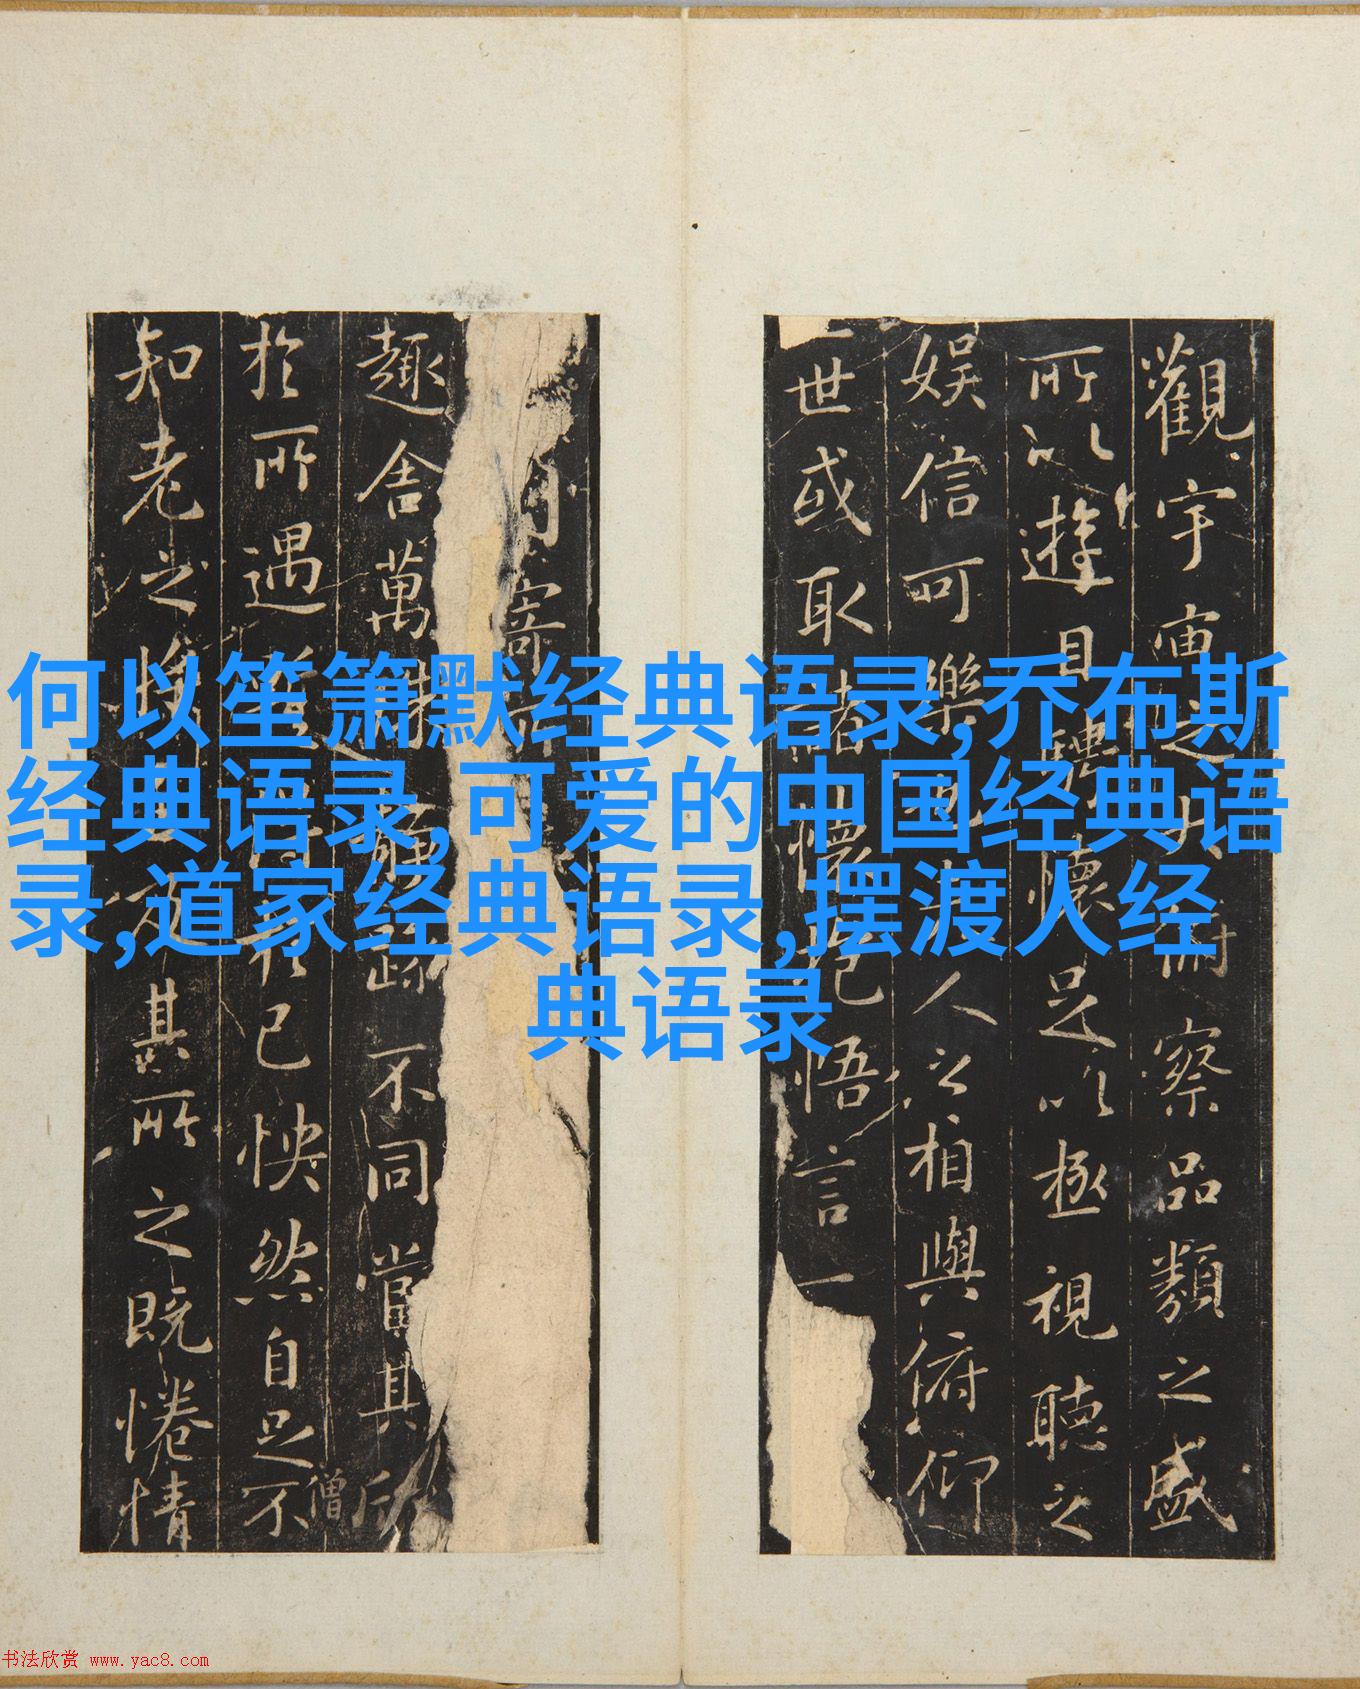 何以笙箫默经典语录,乔布斯
经典语录,可爱的中国经典语
录,道家经典语录,摆渡人经
典语录
觀宇宙之大俯察品類之盛
所以遊目騁懷足以極視聽之
娛信可樂也夫人之相與俯仰
一世或取諸懷抱悟言一
寄
趣舍萬殊靜躁不同當其欣
僧
於所遇蹔得於己怏然自足不
知老之將至及其所之既惓情
书法欣赏 www.yac8.com